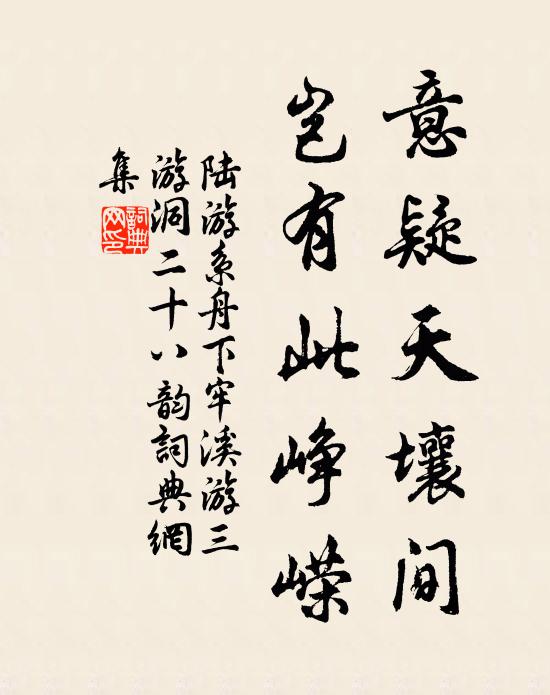 意疑天壤间
岂有此峥嵘
陆游系舟下牢溪游三
游洞二十八韵詞典網
集
詞典
网印